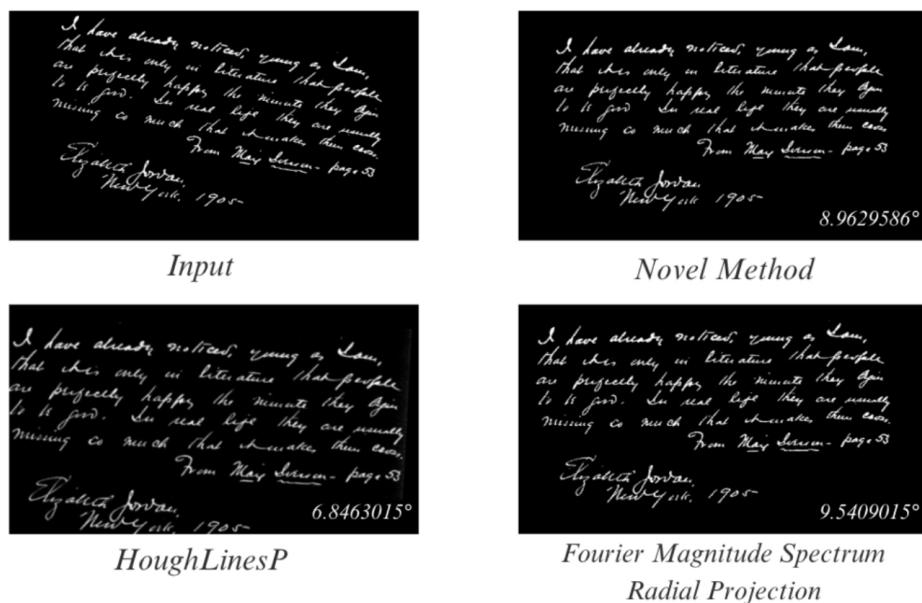 I have already noticed, young as I am,
that it is only in literature that people
are perfectly happy the minute they begin
to be good. In real life they are usually
missing so much that it makes them cross.
From May Iverson - page 53
Elizabeth Jordan,
New York, 1905
Input
I have already noticed, young as I am,
that it is only in literature that people
are perfectly happy the minute they begin
to be good. In real life they are usually
missing so much that it makes them cross.
From May Iverson - page 53
Elizabeth Jordan,
New York, 1905
8.9629586°
Novel Method
I have already noticed, young as I am,
that it is only in literature that people
are perfectly happy the minute they begin
to be good. In real life they are usually
missing so much that it makes them cross.
From May Iverson - page 53
Elizabeth Jordan,
New York, 1905
6.8463015°
HoughLinesP
I have already noticed, young as I am,
that it is only in literature that people
are perfectly happy the minute they begin
to be good. In real life they are usually
missing so much that it makes them cross.
From May Iverson - page 53
Elizabeth Jordan,
New York, 1905
9.5409015°
Fourier Magnitude Spectrum
Radial Projection